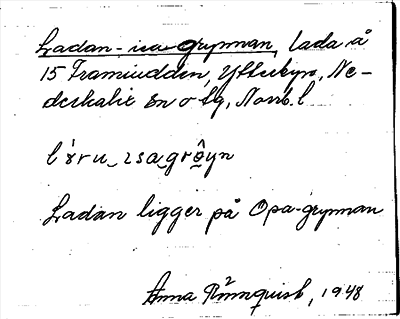 Ladan-isa-grynnan, lada å
15 Framiudden, Ytterbyn, Ne-
derkalix sn o tg, Norrb. l

lɑ̀ru_isa_grô̤yn

Ladan ligger på Opa-grynnan

Anna Rönnquist, 1948